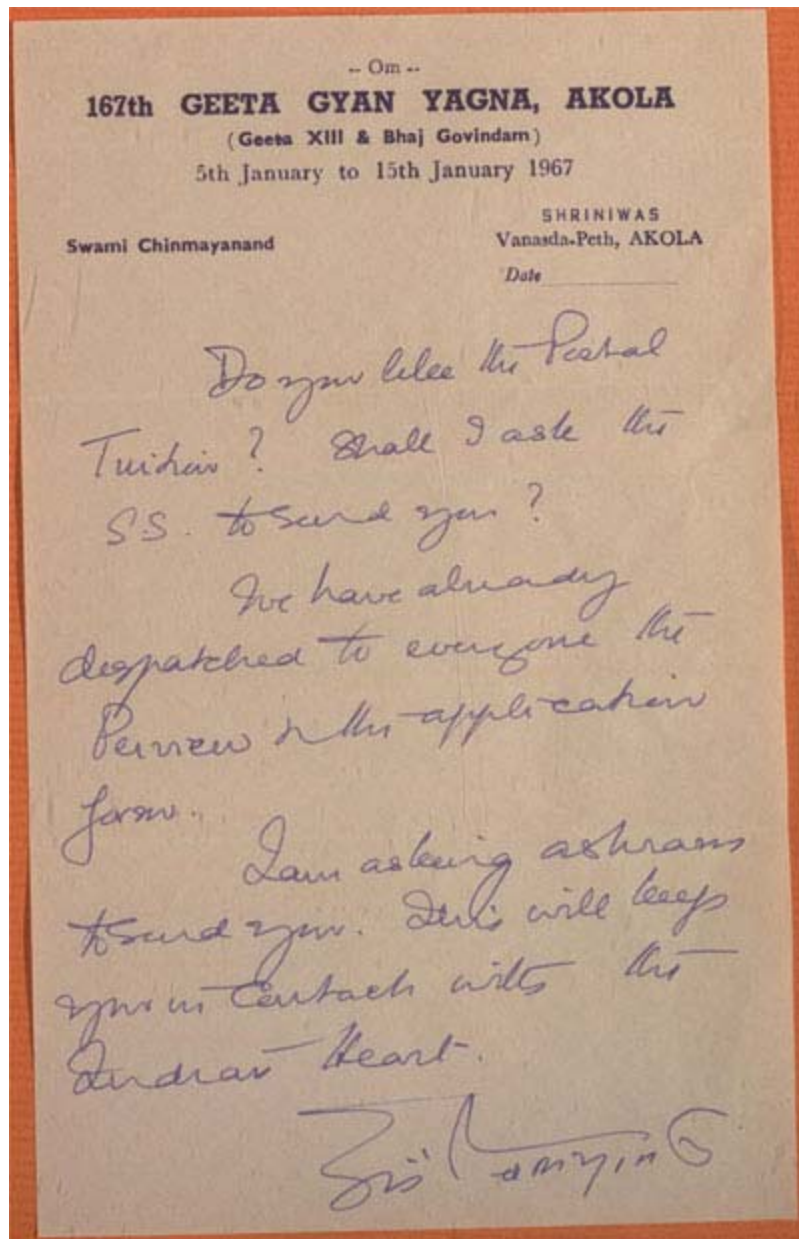 -- Om --
167th GEETA GYAN YAGNA, AKOLA
(Geeta XIII & Bhaj Govindam)
5th January to 15th January 1967
SHRINIWAS
Swami Chinmayanand
Vanasda-Peth, AKOLA
Date
Do you like the Postal
Tuition? Shall I ask the
S.S. to send you?
We have already
despatched to everyone the
in the application
form.
I am asking ashram
to send you. This will keep
you in contact with the
Indian Heart.